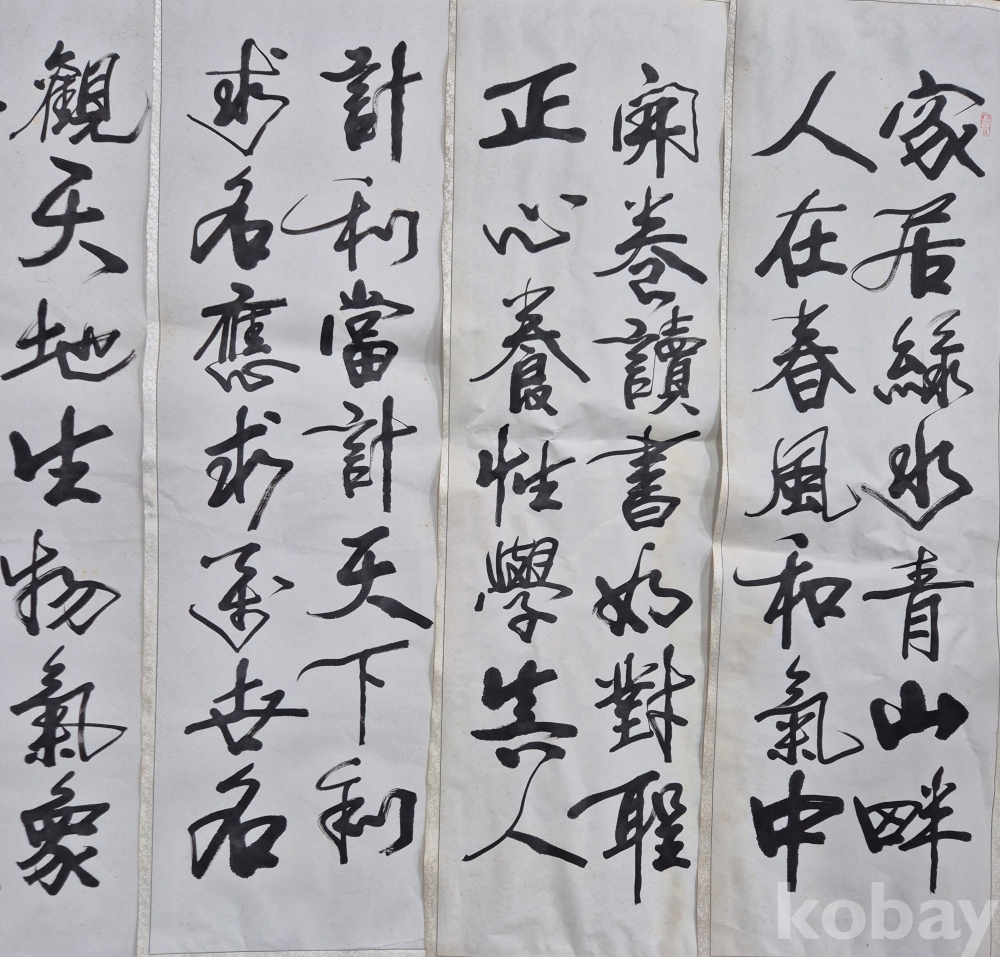 家居綠水青山畔
人在春風和氣中
開卷讀書如對聖
正心養性學眞人
計利當計天下利
求名應求萬世名
觀天地生物氣象
kobay